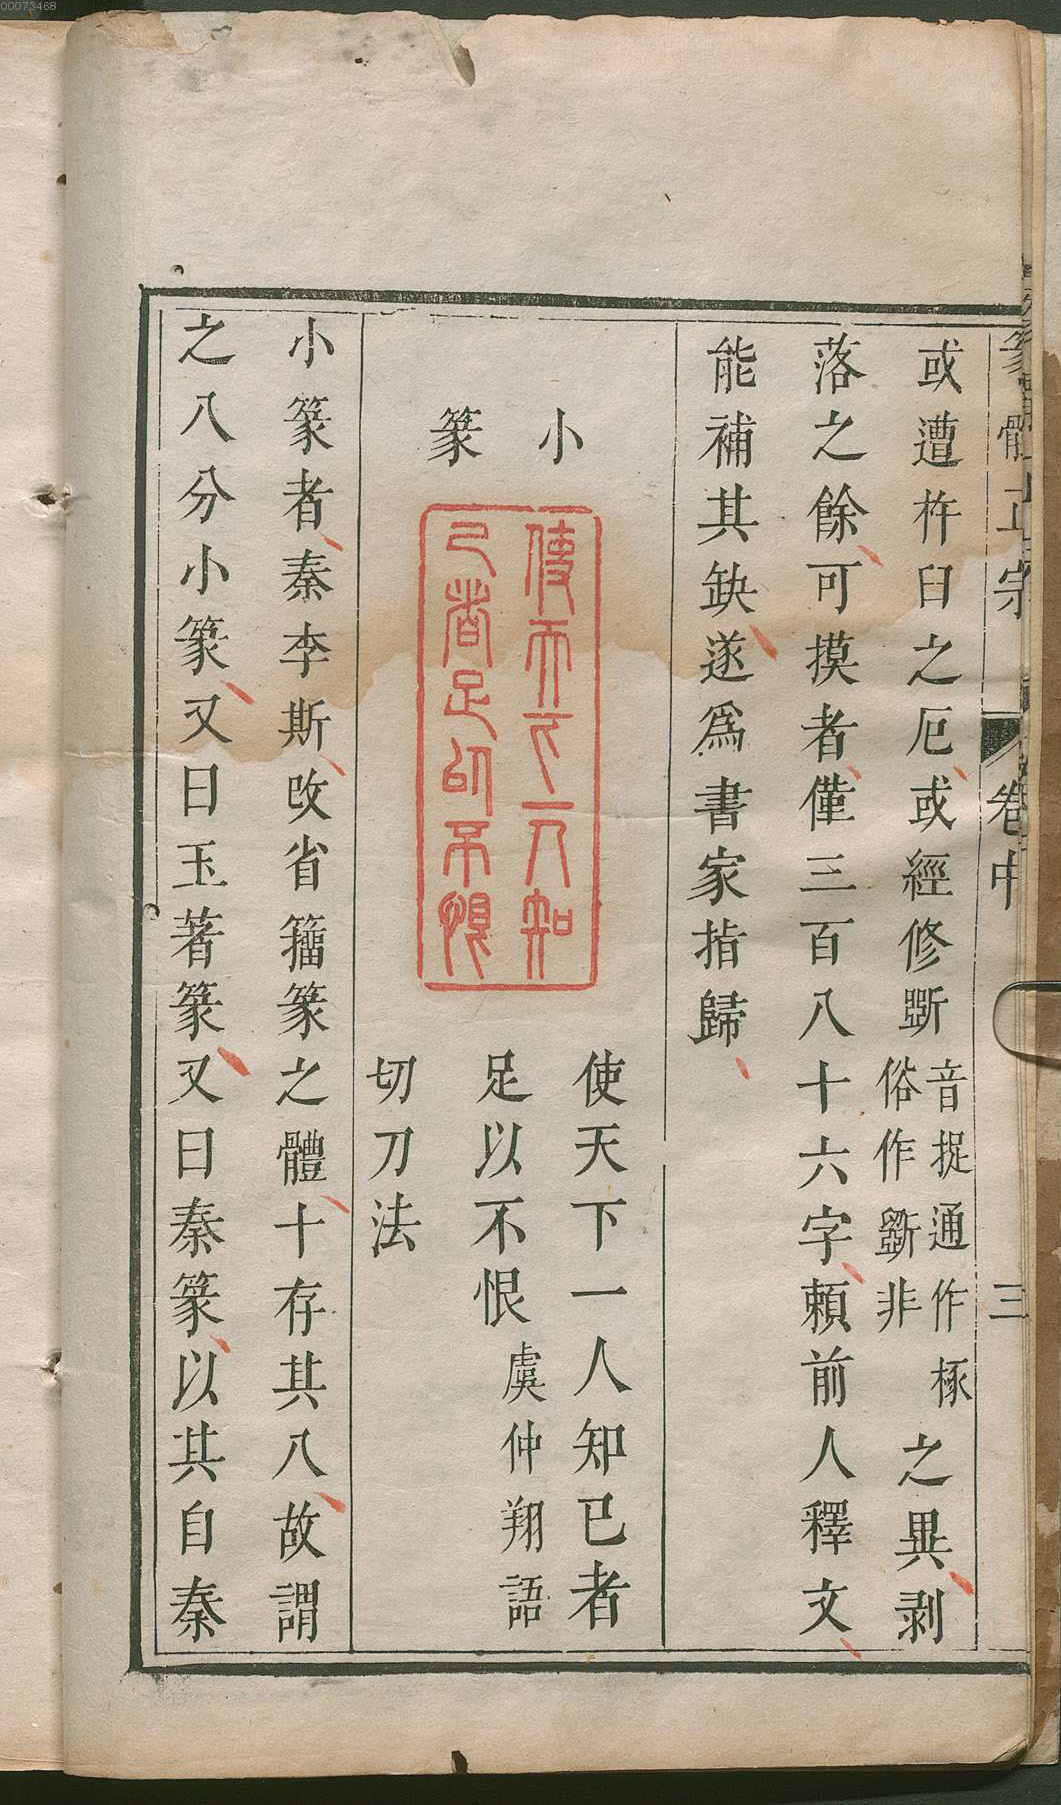 00073468
體正宗 卷中 三
或遭杵臼之厄或經修斵音捉通作椓俗作斲非之異剥
落之餘可摸者僅三百八十六字賴前人釋文
能補其缺遂爲書家指歸
小篆
使天下一人知
己者足以不恨
使天下一人知已者
足以不恨虞仲翔語
切刀法
小篆者秦李斯改省籀篆之體十存其八故謂
之八分小篆又曰玉著篆又曰秦篆以其自秦